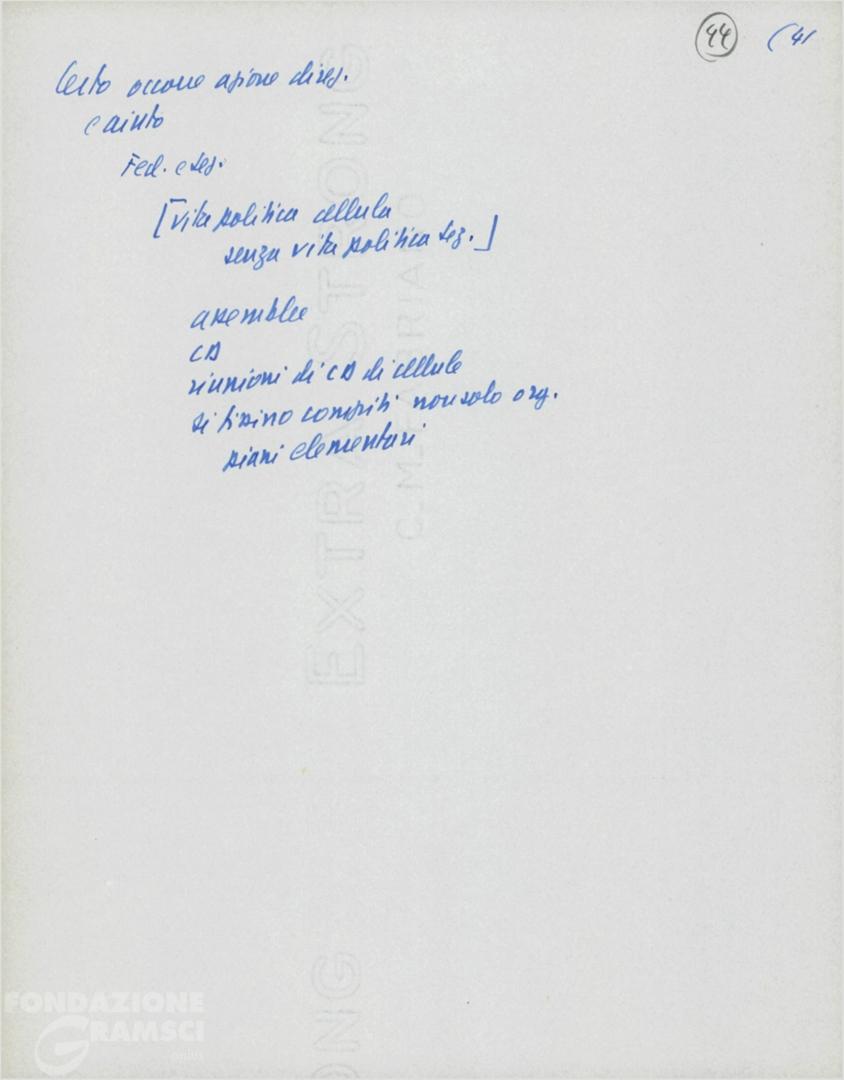 44 (41
Certo occorre azione direz.
e aiuto
Fed. e sez.
[vita politica cellula
senza vita politica sez.]
assemblee
CD
riunioni di CD di cellule
si fissino compiti non solo org.
piani elementari
EXTRA STRONG
C.M. FABRIANO
ONG
FONDAZIONE
GRAMSCI
onlus